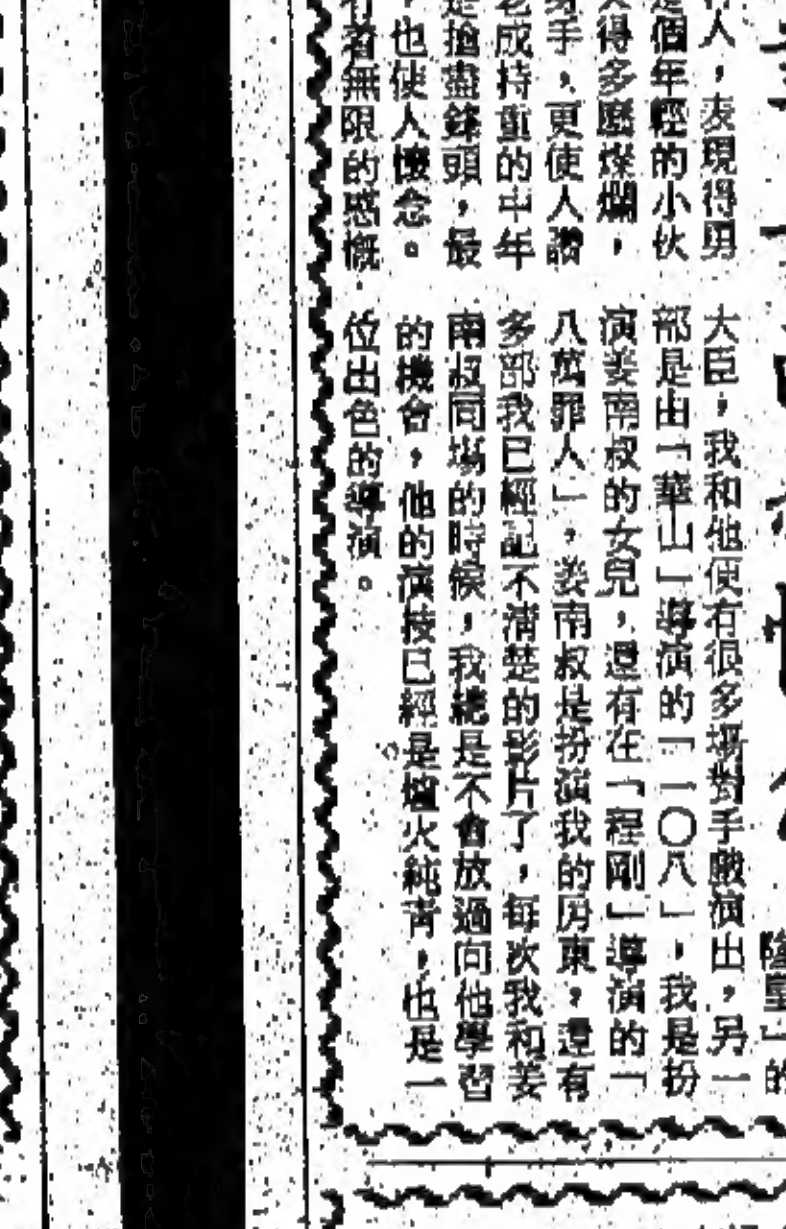 行人，表現得男
是個年輕的小伙
得多麼燦爛，
身手，更使人讚
老成持重的中年
是搶盡鋒頭，最
，也使人懷念。
行者無限的感慨。
隆皇」的
大臣，我和他便有很多場對手戲演出，另一
部是由「華山」導演的「一〇八」，我是扮
演姜南叔的女兒，還有在「程剛」導演的「
八萬罪人」，姜南叔是扮演我的房東，還有
多部我已經記不清楚的影片了，每次我和姜
南叔同場的時候，我總是不會放過向他學習
的機會，他的演技已經是爐火純青，也是一
位出色的導演。